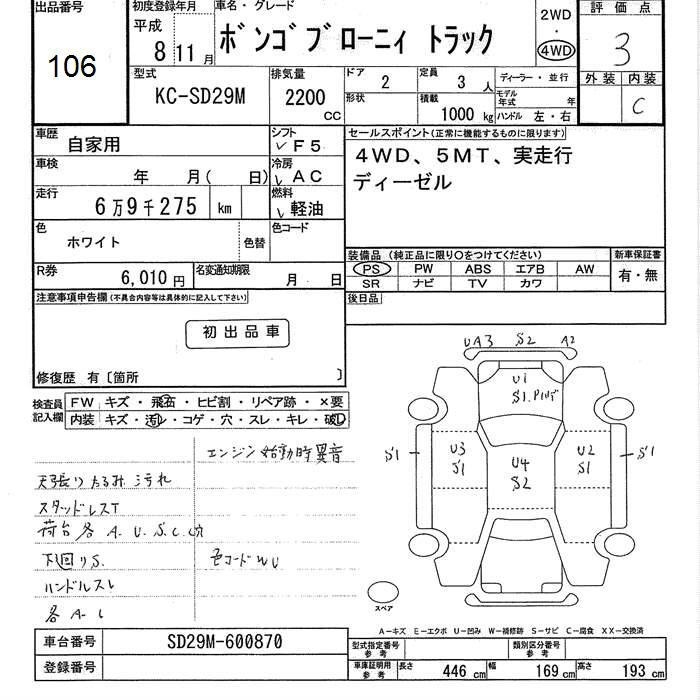 出品番号
106
初度登録年月
平成
8 11月
車名・グレード
ボンゴブローニィ トラック
2WD
4WD
評価点
3
外装 内装
C
型式
KC-SD29M
排気量
2200
CC
ドア
2
定員
3人
形状
積載
1000 kg
ディーラー・並行
モデル年式 年
ハンドル 左・右
車歴
自家用
シフト
F5
車検
年 月( 日)
冷房
AC
走行
6万9千275 km
燃料
軽油
色
ホワイト
色替
色コード
R券
6,010円
名変通知期限
月 日
セールスポイント(正常に機能するものに限ります)
4WD、5MT、実走行
ディーゼル
装備品 (純正品に限り○をつけてください)
PS PW ABS エアB AW
SR ナビ TV カワ
新車保証書
有・無
後日品
注意事項申告欄(不具合内容等は具体的に記入して下さい)
初出品車
修復歴 有〔箇所 〕
検査員記入欄
FW キズ・飛石・ヒビ割・リペア跡・×要
内装 キズ・汚レ・コゲ・穴・スレ・キレ・破レ
エンジン始動時異音
天張りたるみ汚れ
スタッドレスT
荷台各A.U.S.C.穴
下回りS. 色コードWU
ハンドルスレ
各A-L
UA3 S2 A2
U1
S1.
S1
U3
S1
U4
S2
U2
S1
S1
スペア
A-キズ E-エクボ U-凹み W-補修跡 S-サビ C-腐食 XX-交換済
車台番号
SD29M-600870
登録番号
型式指定番号
参考
類別区分番号
参考
車庫証明用
参考
長さ 446cm 幅 169cm 高さ 193cm